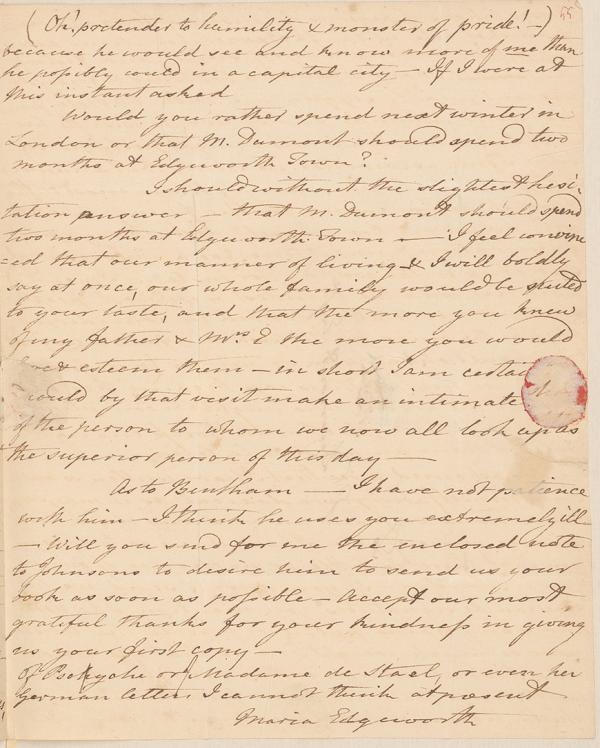 55
(Oh! pretender to humility & monster of pride! —)
because he would see and know more of me than
he possibly could in a capital city — If I were at
this instant asked
Would you rather spend next winter in
London or that M. Dumont should spend two
months at Edgeworth Town?
I should without the slightest hesi-
tation answer — that M. Dumont should spend
two months at Edgeworth-Town — I feel convinc
=ed that our manner of living & I will boldly
say at once, our whole family would be suited
to your taste, and that the more you knew
of my father & Mrs E the more you would
love & esteem them — in short I am certain
would by that visit make an intimate
of the person to whom we now all look up as
the superior person of this day —
As to Bentham — I have not patience
with him — I think he uses you extremely ill
— Will you send for me the enclosed note
to Johnsons to desire him to send us your
book as soon as possible — Accept our most
grateful thanks for your kindness in giving
us your first copy —
Of or Madame de Stael, or even her
German letters I cannot think at present
Maria Edgeworth